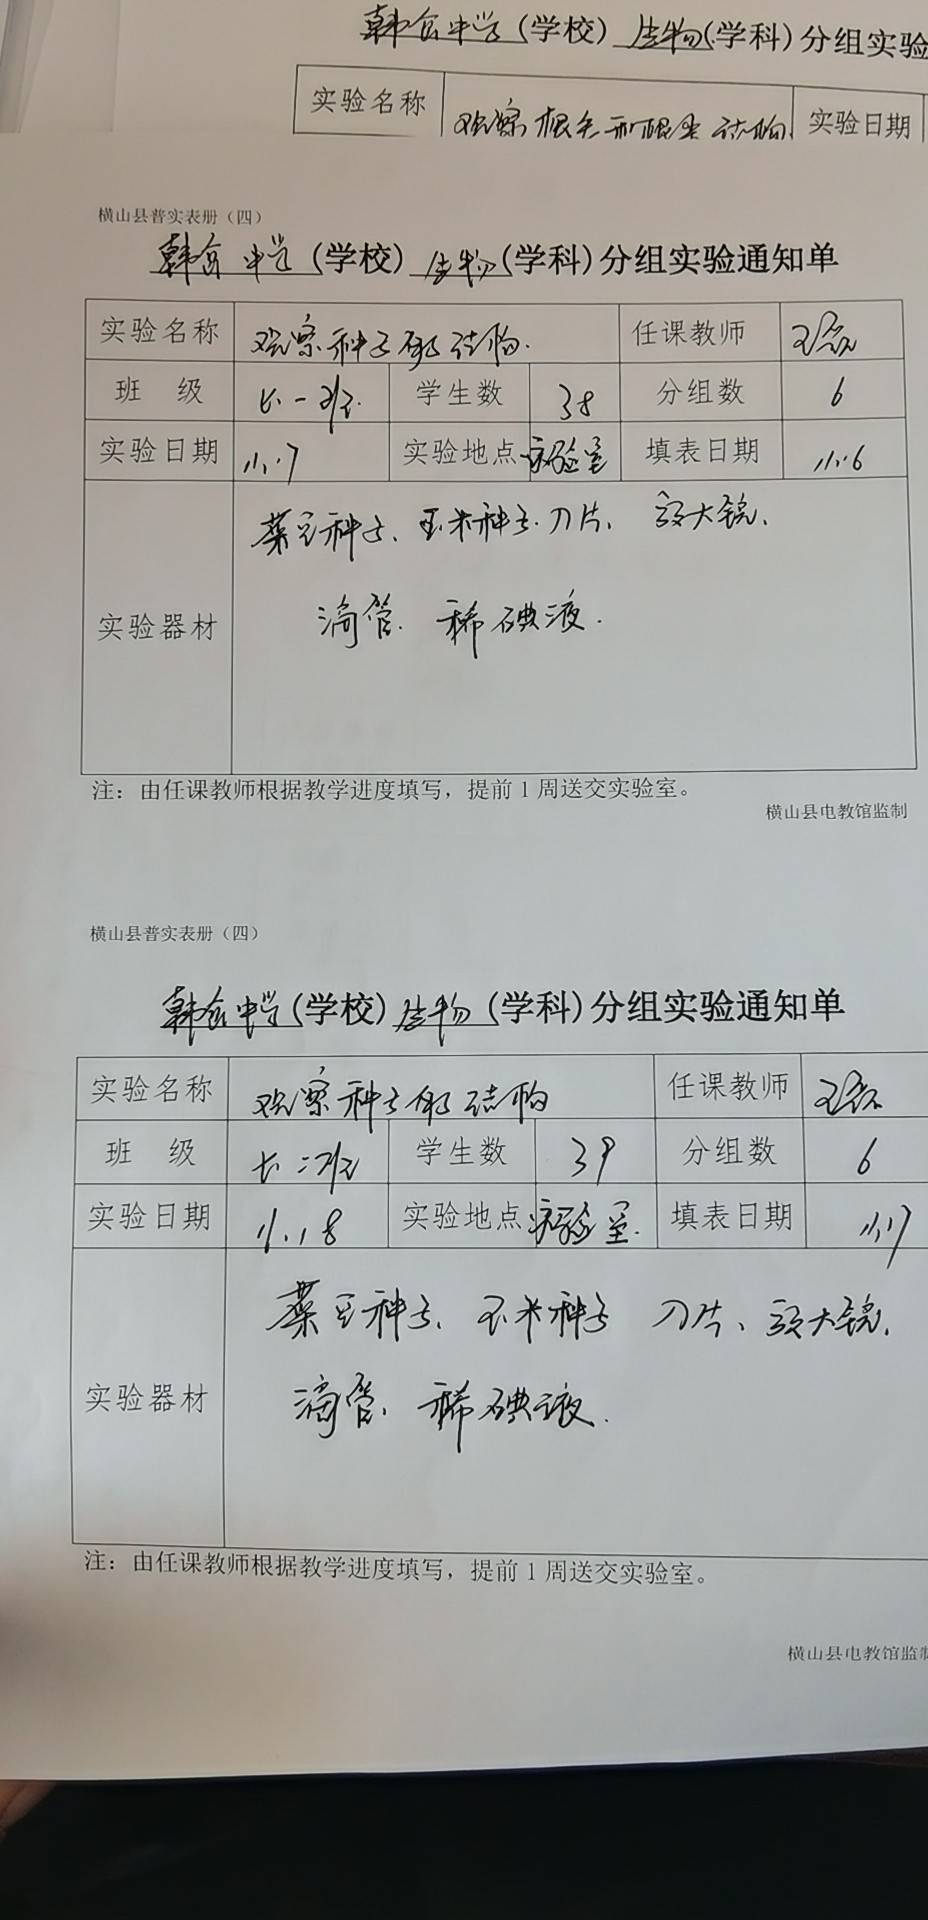 韩岔中学(学校) 生物(学科)分组实验
实验名称 观察根毛和根尖结构 实验日期
横山县普实表册（四）
韩岔中学(学校) 生物(学科)分组实验通知单
实验名称 观察种子的结构. 任课教师
班 级 七一班 学生数 38 分组数 6
实验日期 11.17 实验地点 实验室 填表日期 11.16
实验器材 菜豆种子、玉米种子.刀片、放大镜、
滴管. 稀碘液.
注：由任课教师根据教学进度填写，提前1周送交实验室。
横山县电教馆监制
横山县普实表册（四）
韩岔中学(学校) 生物(学科)分组实验通知单
实验名称 观察种子的结构 任课教师
班 级 七二班 学生数 39 分组数 6
实验日期 11.18 实验地点 实验室. 填表日期 11.17
实验器材 菜豆种子、玉米种子 刀片、放大镜、
滴管、稀碘液.
注：由任课教师根据教学进度填写，提前1周送交实验室。
横山县电教馆监制